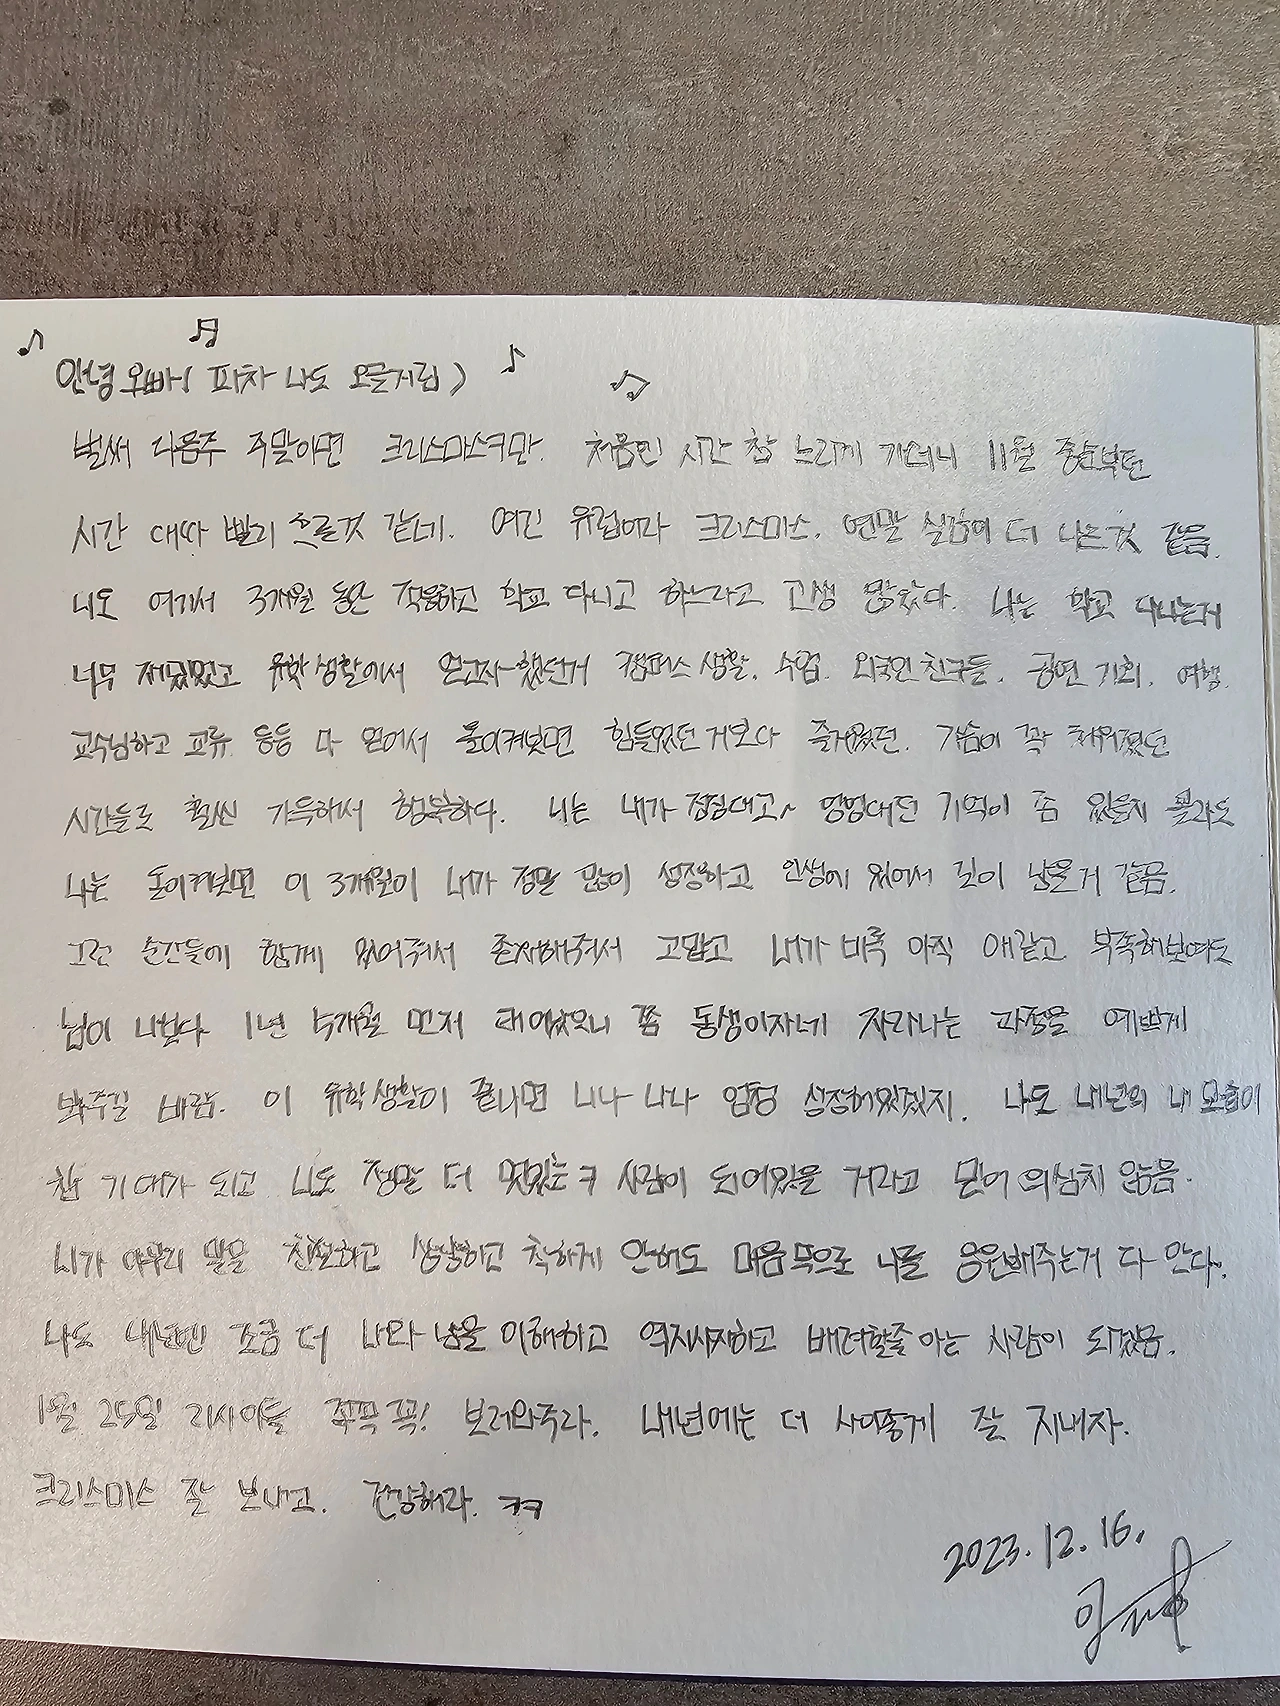 안녕 오빠 ( 피차 나도 오글거림 )
벌써 다음주 주말이면 크리스마스구만. 처음엔 시간 참 느리게 가더니 11월 중순부턴
시간 대따 빨리 흐른것 같네. 여긴 유럽이라 크리스마스. 연말 실감이 더 나는것 같음.
너도 여기서 3개월 동안 적응하고 학교 다니고 하느라고 고생 많았다. 나는 학교 다니는거
너무 재밌었고 유학생활에서 했던거 캠퍼스 생활. 수업. 외국인 친구들. 공연 기회. 여행.
교수님하고 교류 등등 다 돌이켜보면 힘들었던 거보다 즐거웠던. 가슴이 꽉 채워졌던
시간들로 훨씬 가득해서 행복하다. 너는 내가 징징대고~ 엉엉대던 기억이 좀 있을지 몰라도
나는 돌이켜보면 이 3개월이 내가 정말 많이 성장하고 인생에 있어서 깊이 남을거 같음.
그런 순간들에 함께 있어줘서 존재해줘서 고맙고 내가 비록 아직 애같고 부족해보여도
님이 나보다 1년 5개월 먼저 태어났으니 쫌 동생이자네 자라나는 과정을 예쁘게
봐주길 바람. 이 유학생활이 끝나면 너나 나나 엄청 성장해있겠지. 나도 내년의 내 모습이
참 기대가 되고 너도 정말 더 멋있는 사람이 되어있을 거라고 믿어 의심치 않음.
니가 아무리 말을 친절하고 상냥하고 착하게 안해도 마음속으로 나를 응원해주는거 다 안다.
나도 내년엔 조금 더 나와 남을 이해하고 역지사지하고 배려할줄 아는 사람이 되겠음.
1월 25일 리사이틀 꼭! 보러와주라. 내년에는 더 사이좋게 잘 지내자.
크리스마스 잘 보내고. 건강해라. ㅋㅋ
2023. 12. 16.